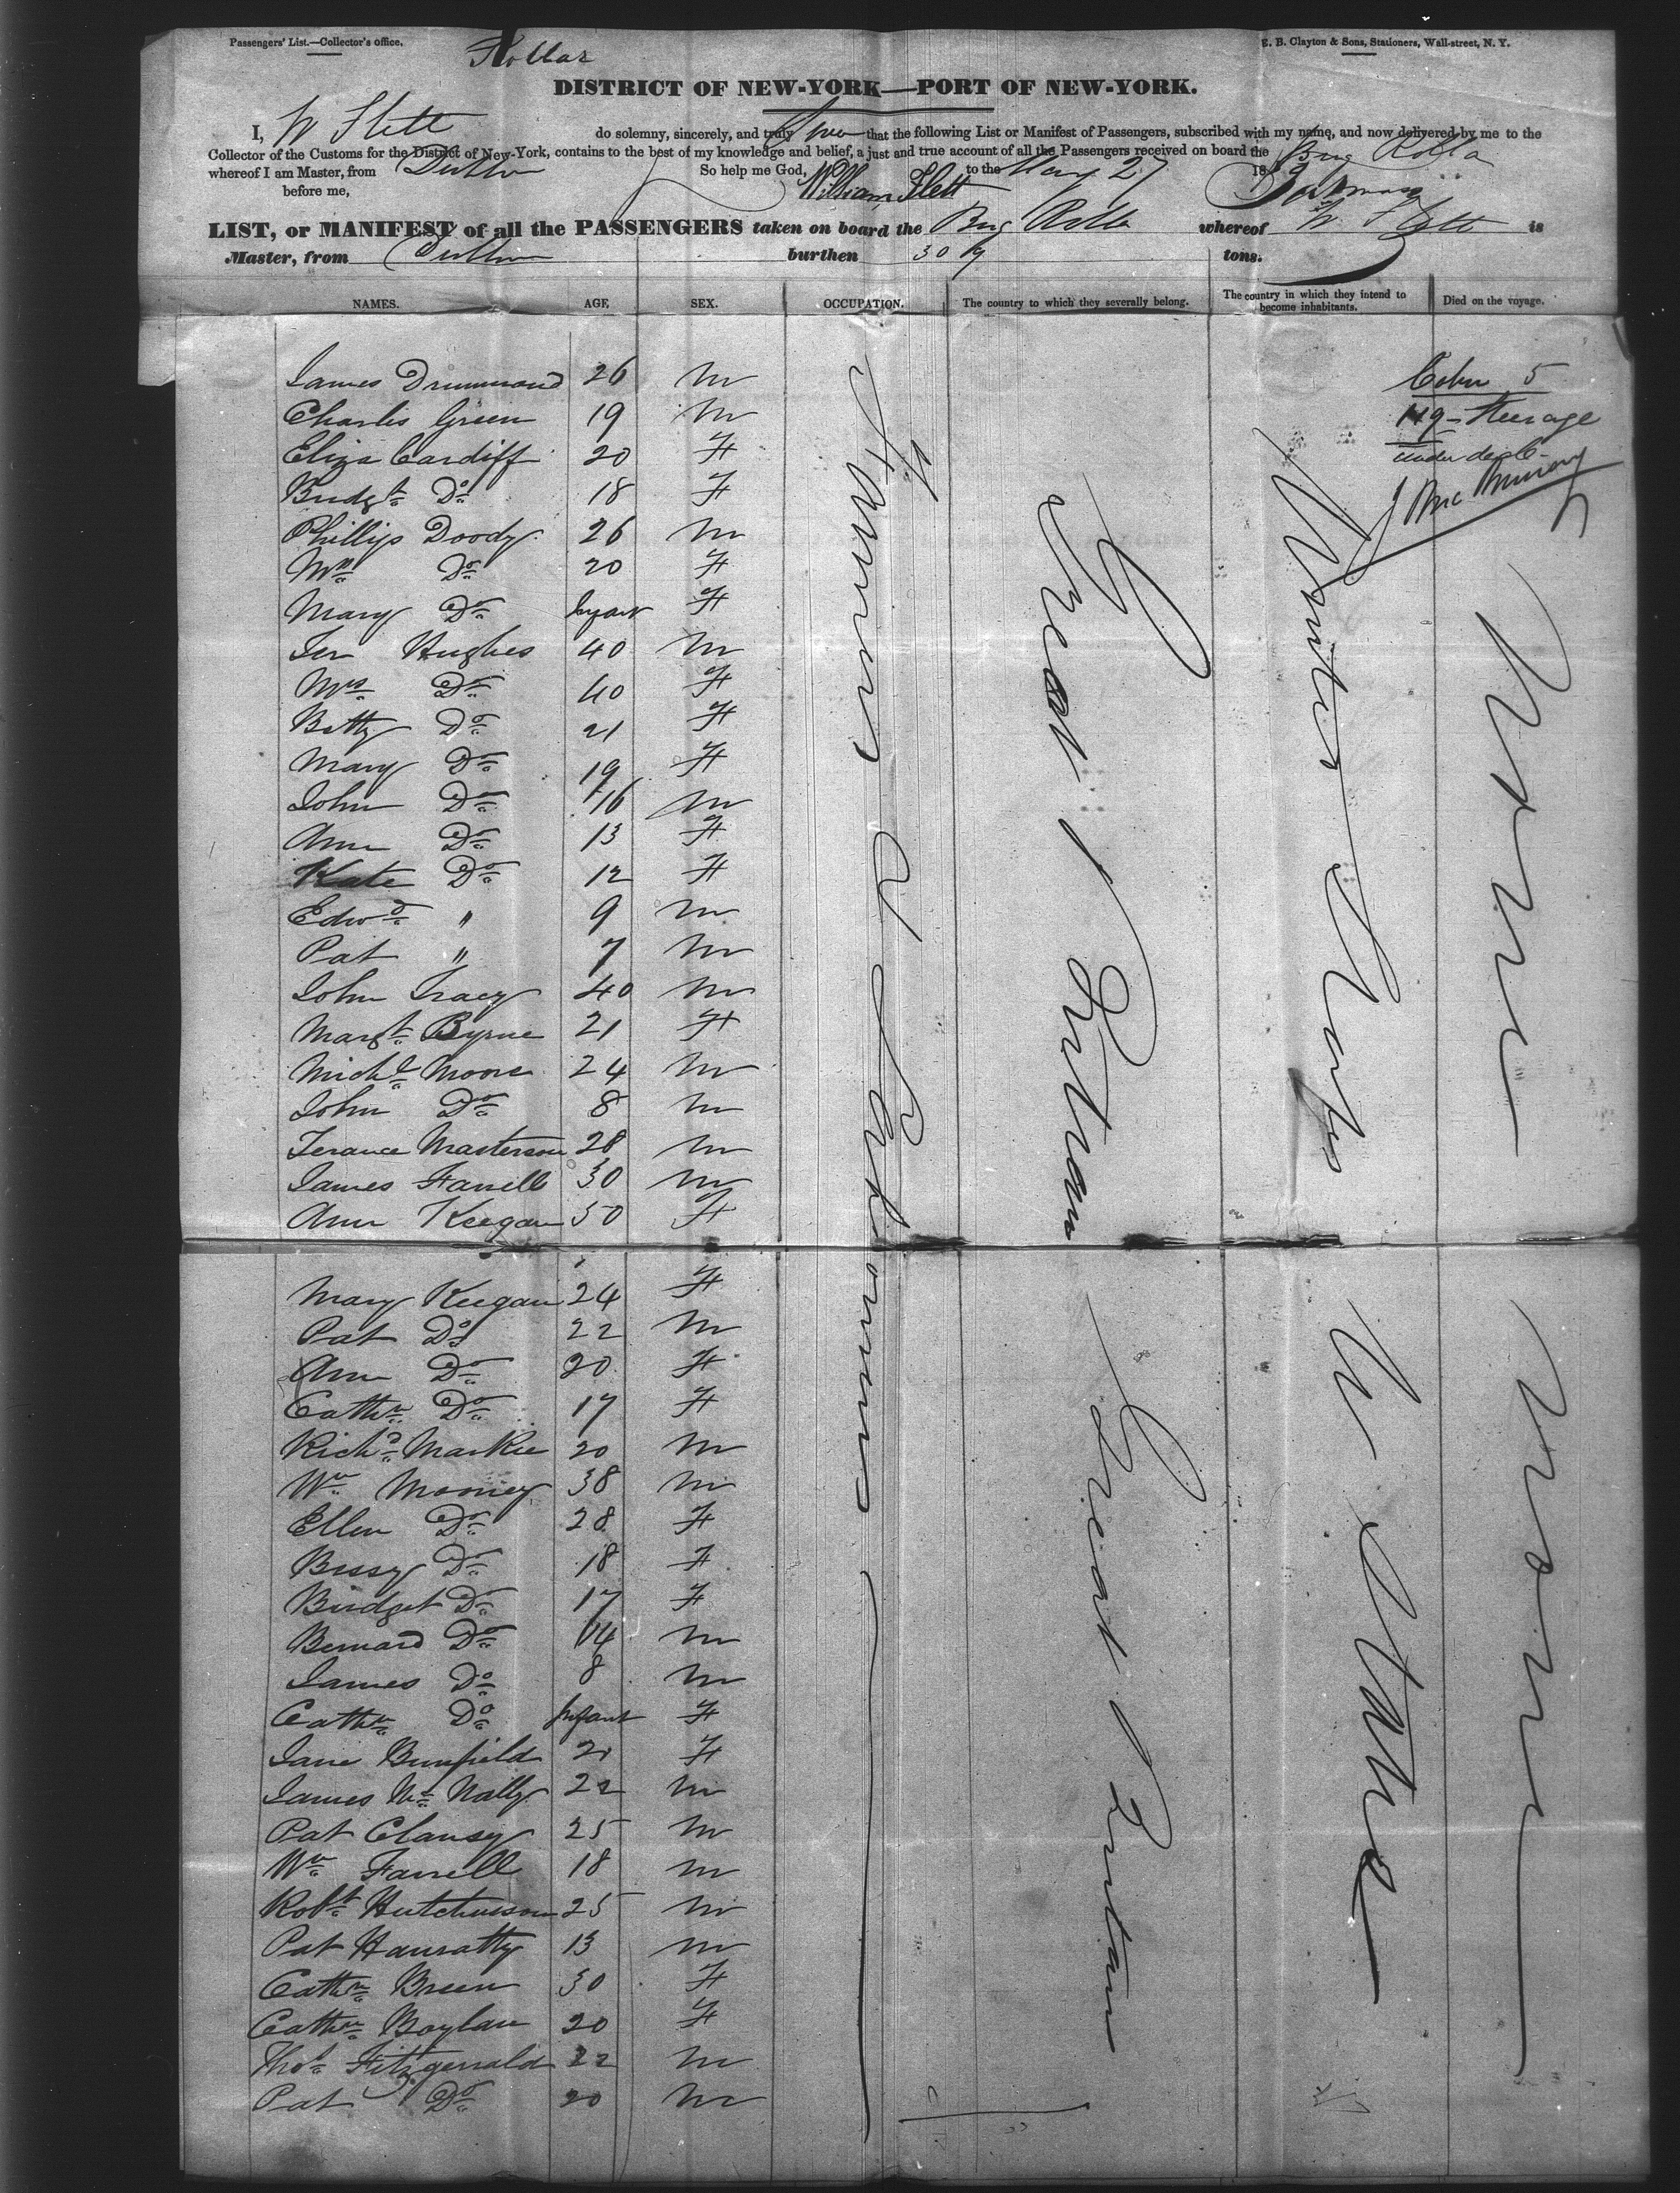 Passengers' List.—Collector's office.
E. B. Clayton & Sons, Stationers, Wall-street, N. Y.
DISTRICT OF NEW-YORK—PORT OF NEW-YORK.
I, W Flett do solemny, sincerely, and truly Swear that the following List or Manifest of Passengers, subscribed with my name, and now delivered by me to the
Collector of the Customs for the District of New-York, contains to the best of my knowledge and belief, a just and true account of all the Passengers received on board the Brig Rolla
whereof I am Master, from Dublin So help me God, to the May 27 18
before me, William Flett
LIST, or MANIFEST of all the PASSENGERS taken on board the Brig Rolla whereof W. Flett is
Master, from Dublin burthen tons.
NAMES. AGE, SEX. OCCUPATION. The country to which they severally belong. The country in which they intend to become inhabitants. Died on the voyage.
James Drummond 26 M
Charles Green 19 M
Eliza Cardiff 20 F
Bridgt Do 18 F
Phillip Doody 26 M
Do 20 F
Mary Do Infant F
Jer Hughes 40 M
Mrs Do 40 F
Betty Do 21 F
Mary Do 19 F
John Do 16 M
Ann Do 13 F
Kate Do 12 F
Edwd " 9 M
Pat " 7 M
John Tracy 40 M
Margt Byrne 21 F
Michl Moore 24 M
John Do 8 M
Terance Masterson 28 M
James Farrell 30 M
Ann Keegan 50 F
Mary Keegan 24 F
Pat Do 22 M
Ann Do 20 F
Cathn Do 17 F
Richd Markie 20 M
Wm Mooney 38 M
Ellen Do 28 F
Bessy Do 18 F
Bridget Do 17 F
Bernard Do 14 M
James Do 8 M
Cathn Do Infant F
Jane Bunfield 21 F
James Mc Nally 22 M
Pat Clansy 25 M
Wm Farrell 18 M
Robt Hutchinson 25 M
Pat Hanratty 13 M
Cathn Breen 30 F
Cathn Boylan 20 F
Thos Fitzgerrald 22 M
Pat Do 20 M
Great Britain
Great Britain
United States
U States
None
None
Cabin 5
119 - Steerage
under deck